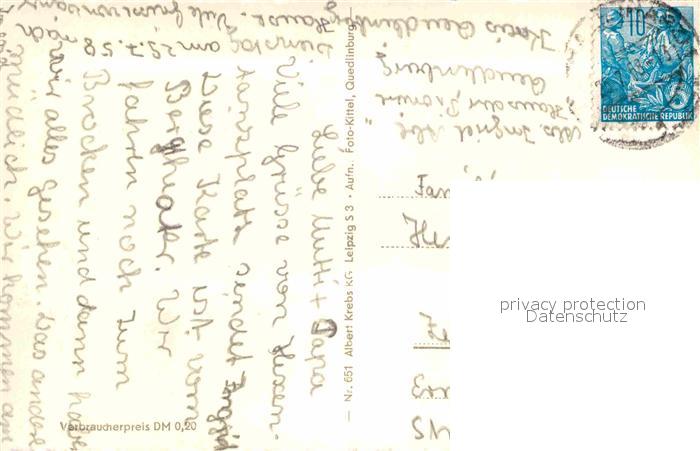 Liebe Mutti + Papa
Viele Grüsse von Hexen-
tanzplatz sendet Ingrid
Diese Karte ist vom
Bergtheater. Wir
fahren noch zum
Brocken und dann haben
wir alles gesehen. Das andere
mündlich. Wir kommen am
Dienstag am 29.7.58 nach
Hause. Viele
Abs. Ingrid
"Haus der Pioniere"
Quedlinburg
Kreis Quedlinburg
Fam
He
Verbraucherpreis DM 0,20
— Nr. 651 Albert Krebs KG Leipzig S 3 • Aufn. Foto-Kittel, Quedlinburg —
10
5
DEUTSCHE
DEMOKRATISCHE REPUBLIK
privacy protection
Datenschutz